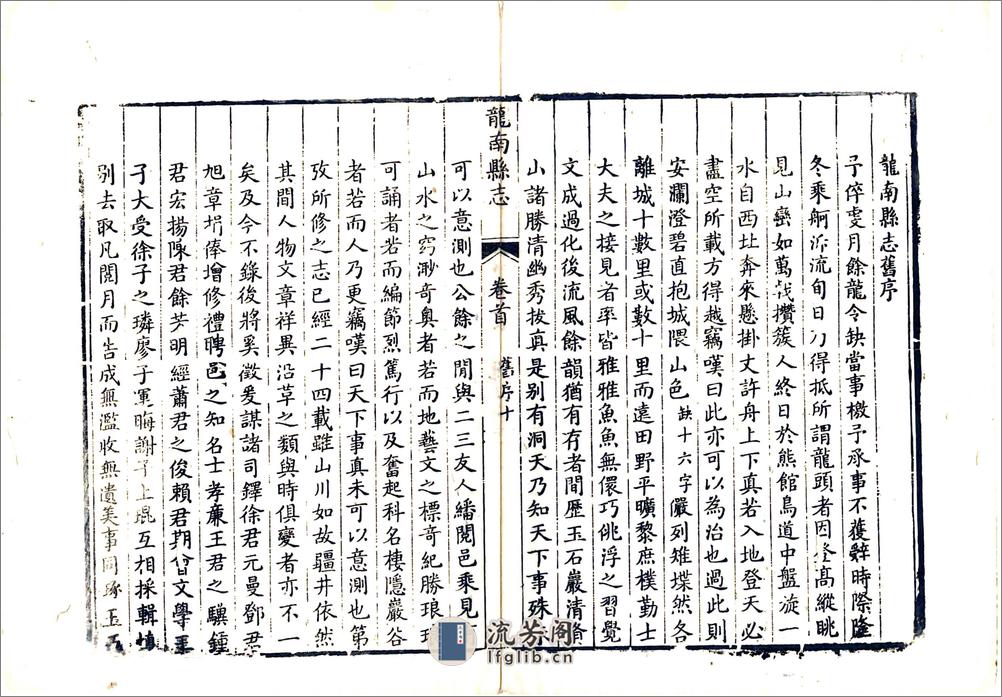 龍南縣志舊序
予倅雯月餘龍令缺當事檄予承事不獲辭時際隆
冬乘舸泝流旬日乃得抵所謂龍頭者因登高縱眺
見山巒如萬戟攢簇人終日於熊館鳥道中盤旋一
水自西北奔來懸掛丈許舟上下真若入地登天必
盡空所載方得越竊嘆曰此亦可以為治也過此則
安瀾澄碧直抱城隈山色缺十六字儼列雉堞然各
離城十數里或數十里而遠田野平曠黎庶樸勤士
大夫之接見者率皆雅雅魚魚無儇巧佻浮之習覺
文成過化後流風餘韻猶有存者間歷玉石巖清脩
山諸勝清幽秀拔真是别有洞天乃知天下事殊
龍南縣志
卷首
舊序十
可以意測也公餘之閒與二三友人繙閱邑乘見
山水之窈渺奇奧者若而地藝文之標奇紀勝琅玕
可誦者若而編節烈篤行以及奮起科名棲隱巖谷
者若而人乃更竊嘆曰天下事真未可以意測也第
攷所修之志已經二十四載雖山川如故疆井依然
其間人物文章祥異沿革之類與時俱變者亦不一
矣及今不錄後將奚徵爰謀諸司鐸徐君元曼鄧君
旭章捐俸增修禮聘邑之知名士孝亷王君之驥鍾
君宏揚陳君餘芳明經蕭君之俊賴君期曾文學王
子大受徐子之璘廖子運晦謝子上琨互相採輯慎
别去取凡閱月而告成無濫收無遺美事同琢玉
流芳阁
lfglib.cn